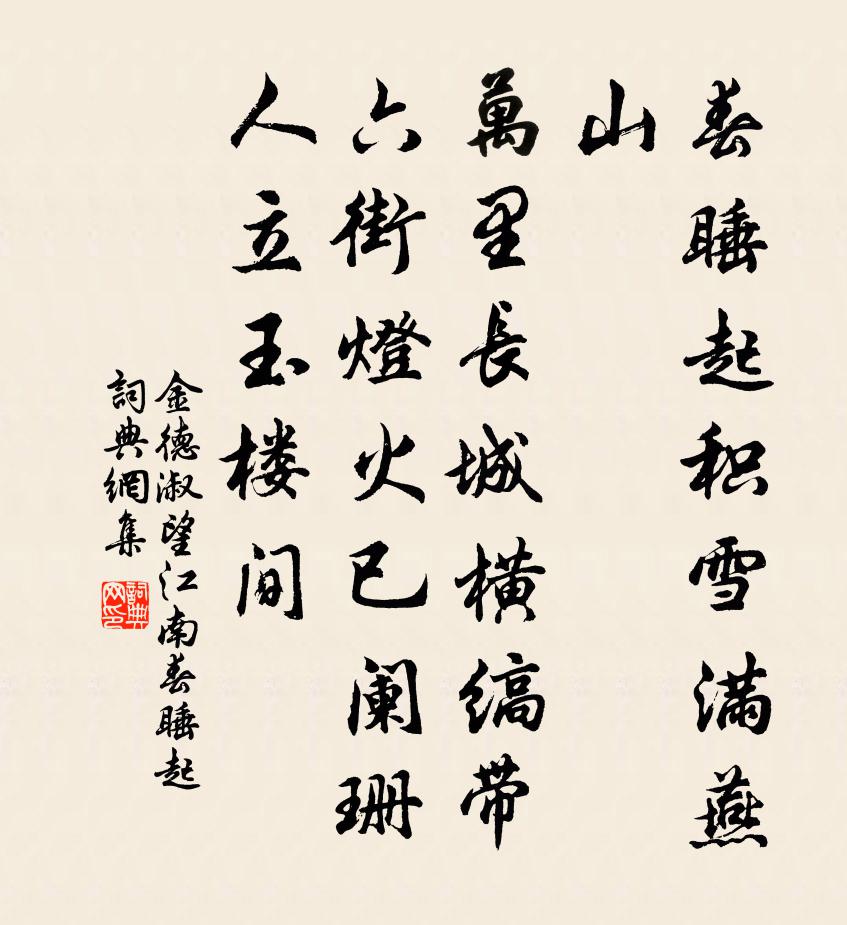 春睡起积雪满燕
山
萬里長城横缟带
六街燈火已阑珊
人立玉楼间
金德淑望江南春睡起
詞典網集
詞典网印